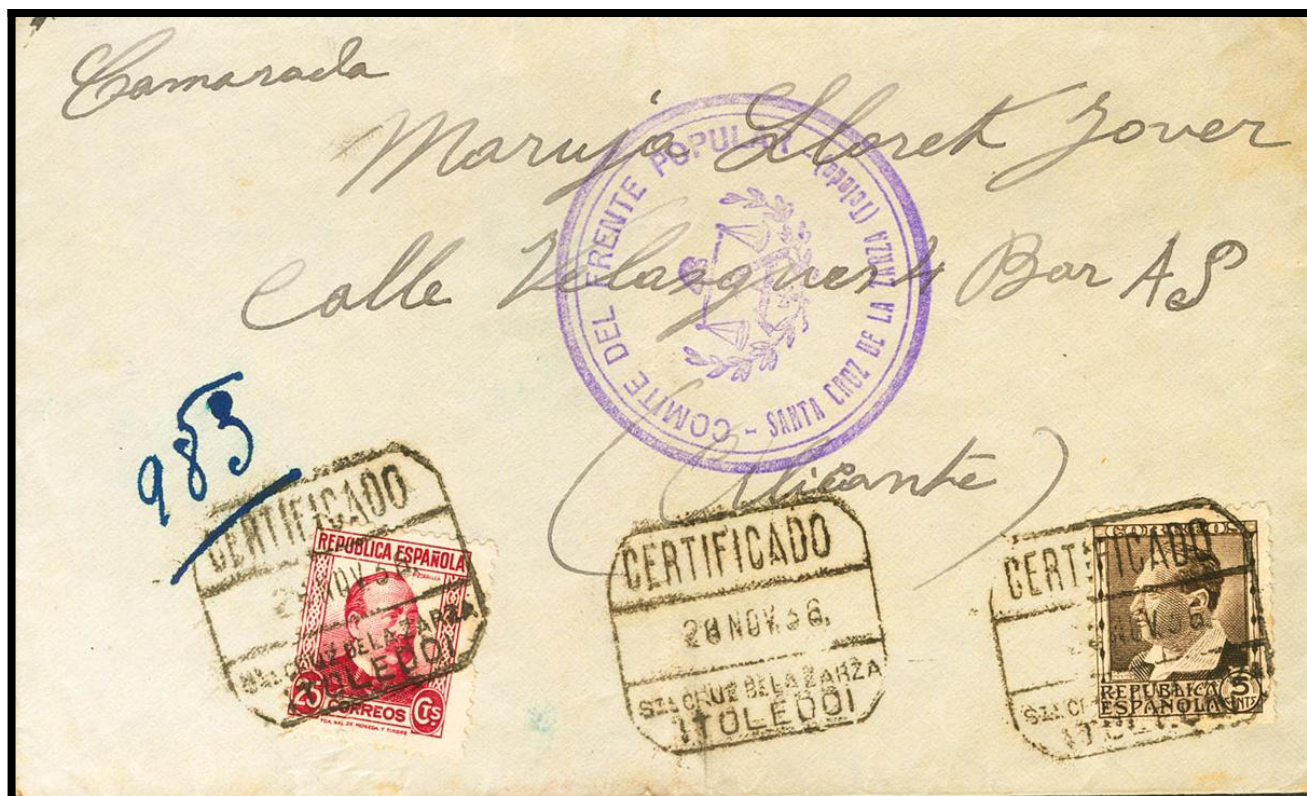 Camarada
Maruja Lloret Jover
Calle Velasques 4 Bar AS
(Alicante)
COMITE DEL FRENTE POPULAR - SANTA CRUZ DE LA ZARZA (Toledo) -
983
CERTIFICADO
NOV 36
STA CRUZ DE LA ZARZA
(TOLEDO)
REPUBLICA ESPAÑOLA
25 Cts
CORREOS
CERTIFICADO
28 NOV. 36.
STA CRUZ DE LA ZARZA
(TOLEDO)
CERTIFICADO
NOV. 36.
STA
CORREOS
REPUBLICA
ESPAÑOLA
5